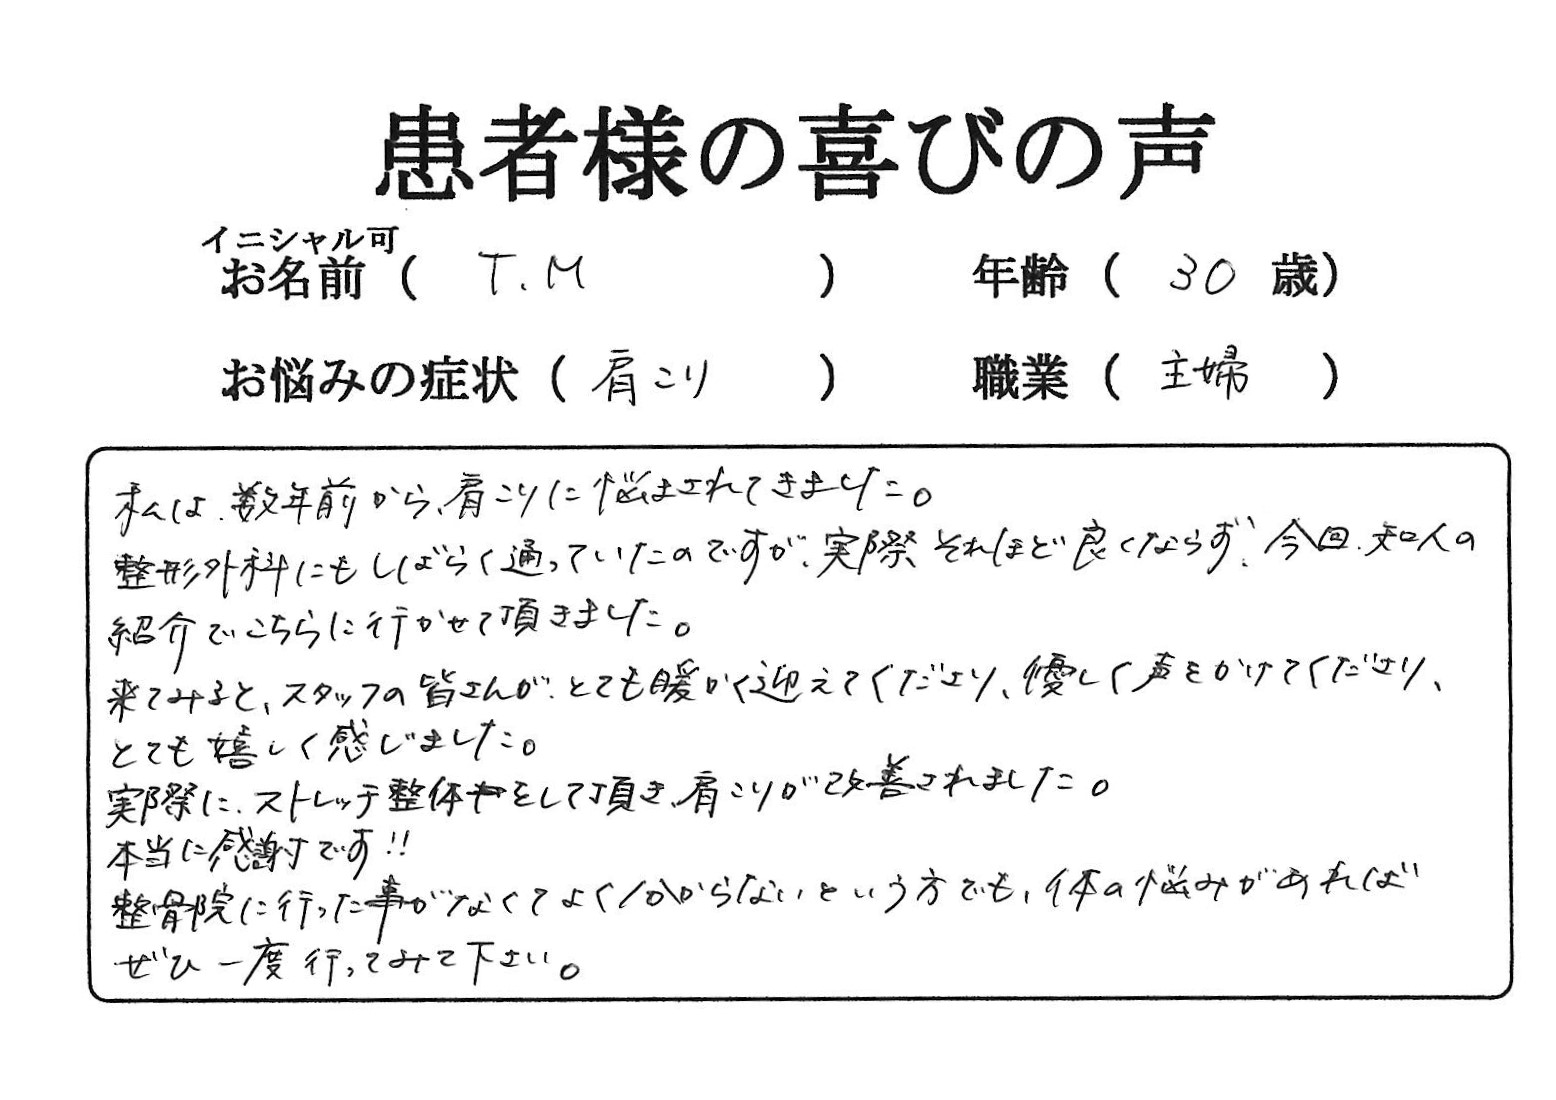 患者様の喜びの声
イニシャル可
お名前 ( T.M ) 年齢 ( 30 歳)
お悩みの症状 ( 肩こり ) 職業 ( 主婦 )
私は、数年前から、肩こりに悩まされてきました。
整形外科にもしばらく通っていたのですが、実際それほど良くならず、今回、知人の
紹介でこちらに行かせて頂きました。
来てみると、スタッフの皆さんが、とても暖かく迎えてくださり、優しく声をかけてくださり、
とても嬉しく感じました。
実際に、ストレッチ整体をして頂き、肩こりが改善されました。
本当に感謝です!!
整骨院に行った事がなくてよく分からないという方でも、体の悩みがあれば
ぜひ一度行ってみて下さい。